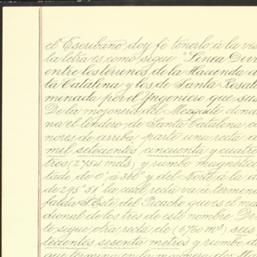 el Escribano doy fe tenerlo á la vis
la letra es como sigue "Linea Divi
entre los terrenos de la Hacienda d
la Catalina y los de Santa Rosal
minada por el Ingeniero que sus
De la mojonera del Mezquite donde
na el lindero de Santa Catalina p
nores de arriba parte una recta
mil setecientos cincuenta y cuatro
tros (2754 mts) y rumbo magnético
tado de 0° á 360° y del Norte á la d
de 295° 51' la cual recta va á termina
falda S. Este del Picacho que es el ma
dional de los tres de este nombre De
lo sigue otra recta de (6760 m) seis
tecientos sesenta metros y rumbo de
que termina en la mojonera